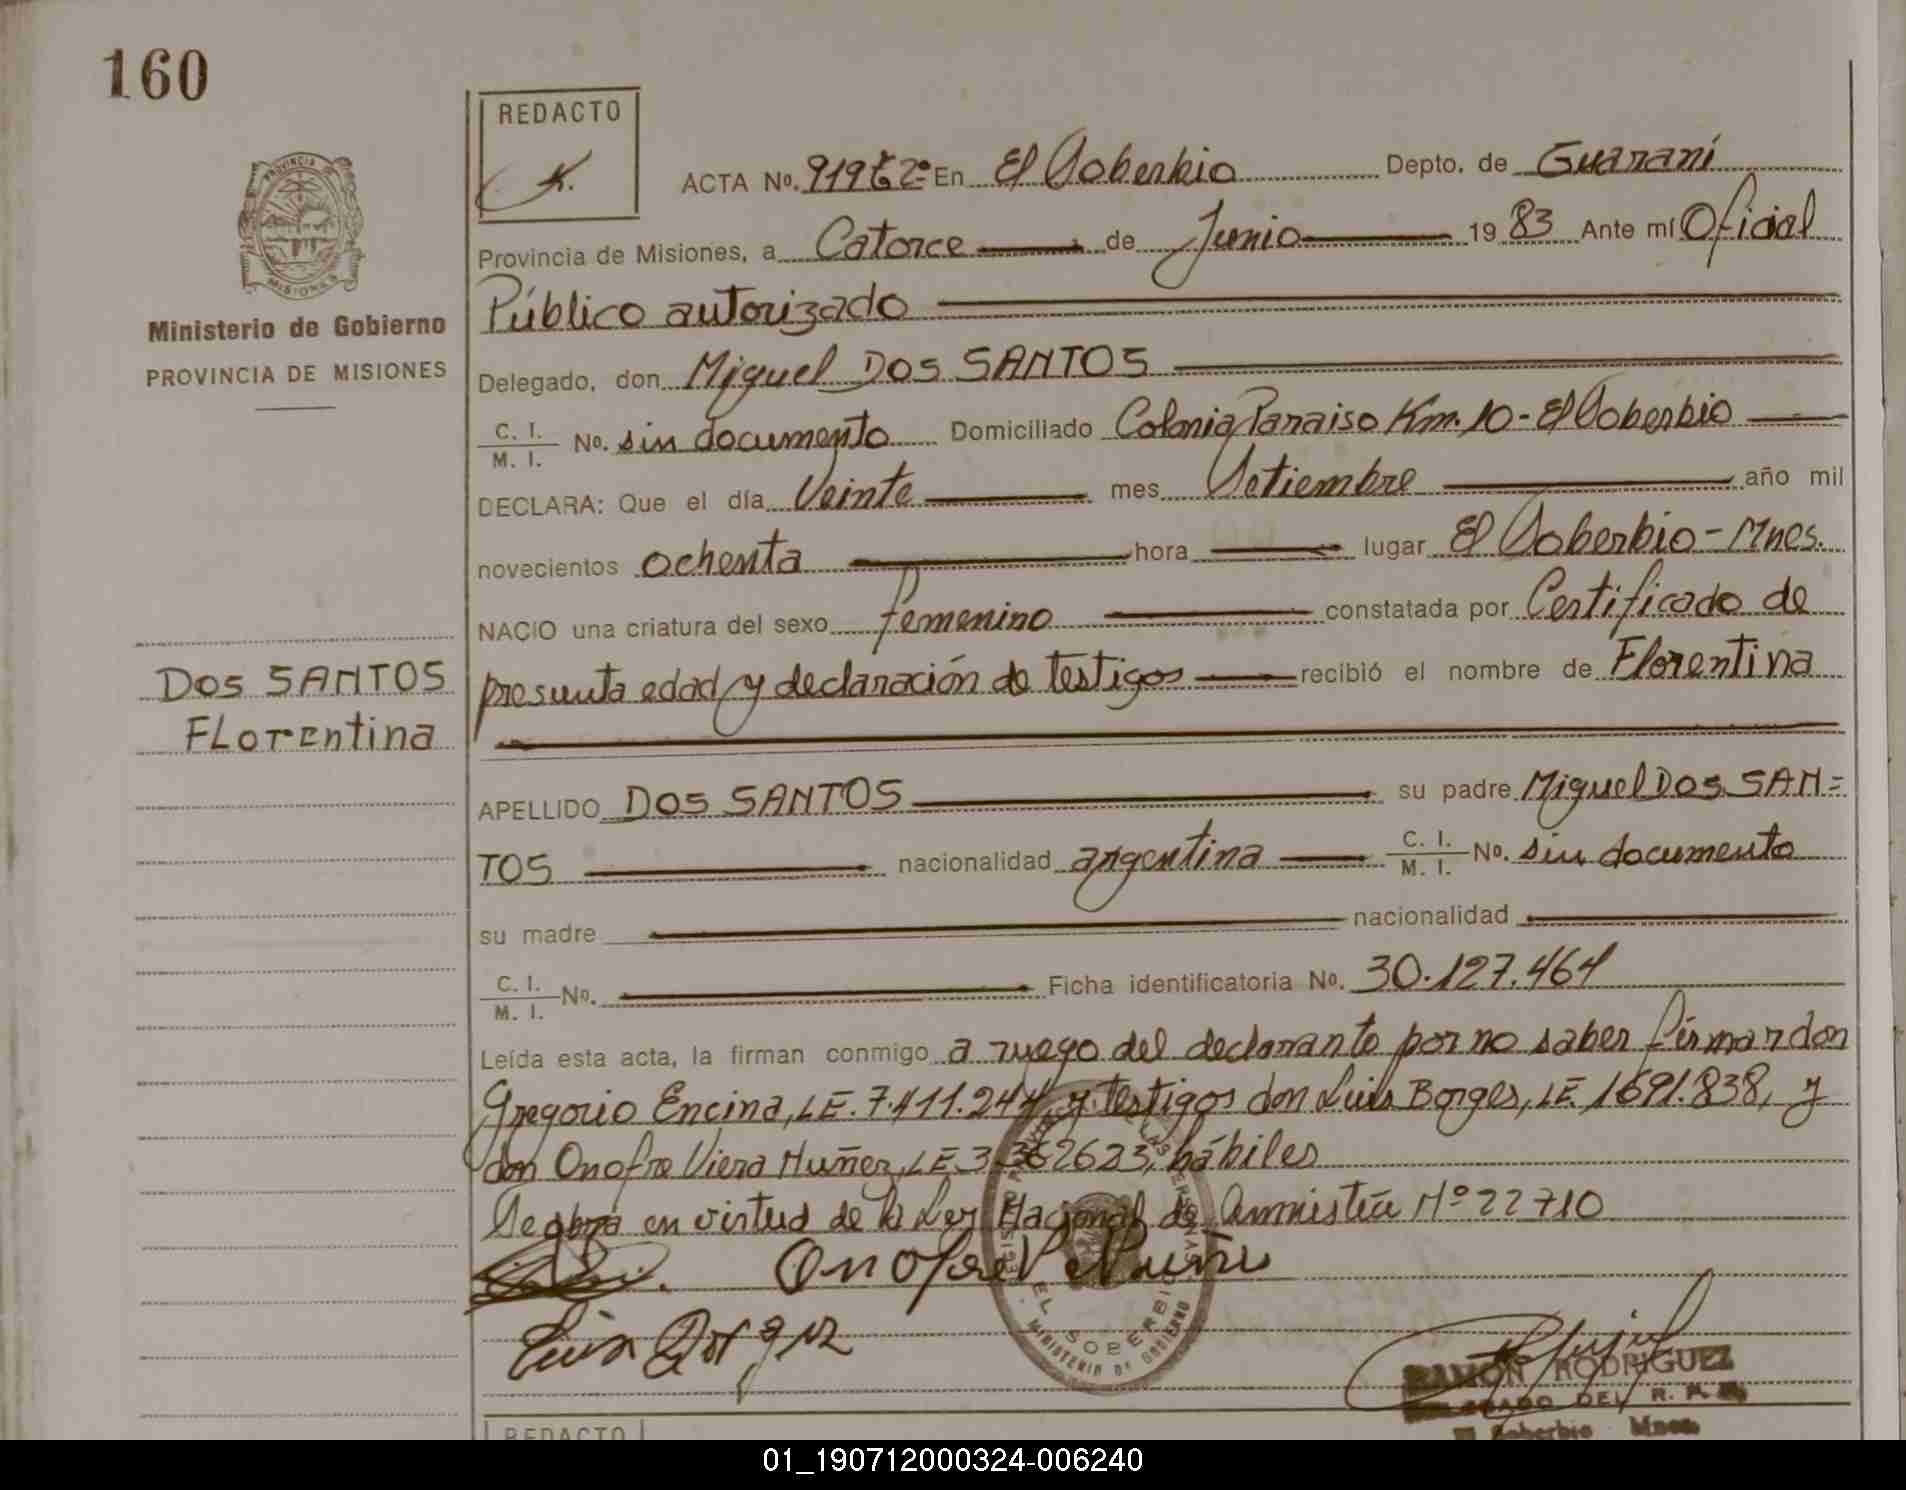 160
REDACTO
PROVINCIA
MISIONES
Ministerio de Gobierno
PROVINCIA DE MISIONES
ACTA No. 919 t 2º En El Soberbio Depto. de Guaraní
Provincia de Misiones, a Catorce de Junio 19 83 Ante mí Oficial
Público autorizado
Delegado, don Miguel DOS SANTOS
C. I.
M. I. No. sin documento Domiciliado Colonia Paraiso Km. 10 - El Soberbio
DECLARA: Que el día Veinte mes Setiembre año mil
novecientos ochenta hora lugar El Soberbio - Mnes.
NACIO una criatura del sexo femenino constatada por Certificado de
presunta edad y declaración de testigos recibió el nombre de Florentina
DOS SANTOS
Florentina
APELLIDO DOS SANTOS su padre Miguel DOS SAN=
TOS nacionalidad argentina C. I.
M. I. No. sin documento
su madre nacionalidad
C. I.
M. I. No. Ficha identificatoria No. 30.127.464
Leída esta acta, la firman conmigo a ruego del declarante por no saber firmar don
Gregorio Encina, LE. 7.411.244, y testigos don Luis Borges, LE. 1691.838, y
don Onofre Viera Nuñez, LE 3.362623, hábiles
Se abra en virtud de la Ley Nacional de Amnistía Nº 22710
Onofre V Nuñes
Luis Borges
EL SOBERBIO
MINISTERIO DE GOBIERNO
RAMON RODRIGUEZ
DELEGADO DEL R. P.
El Soberbio Mnes.
REDACTO
01_190712000324-006240